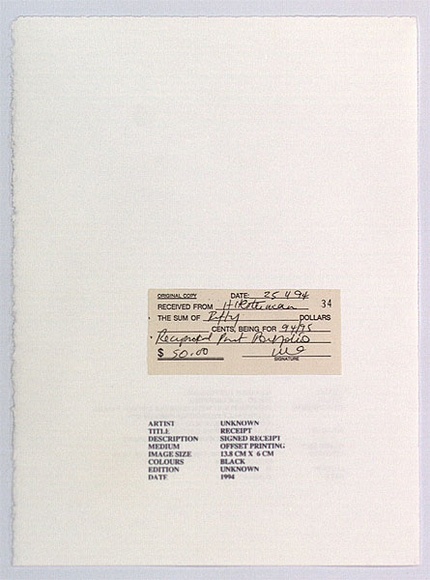 ORIGINAL COPY DATE: 25 4 94
RECEIVED FROM H Roterman 34
THE SUM OF Fifty DOLLARS
CENTS, BEING FOR 94/95
Reciprocal Print Portfolio
$ 50.00
SIGNATURE
ARTIST UNKNOWN
TITLE RECEIPT
DESCRIPTION SIGNED RECEIPT
MEDIUM OFFSET PRINTING
IMAGE SIZE 13.8 CM X 6 CM
COLOURS BLACK
EDITION UNKNOWN
DATE 1994